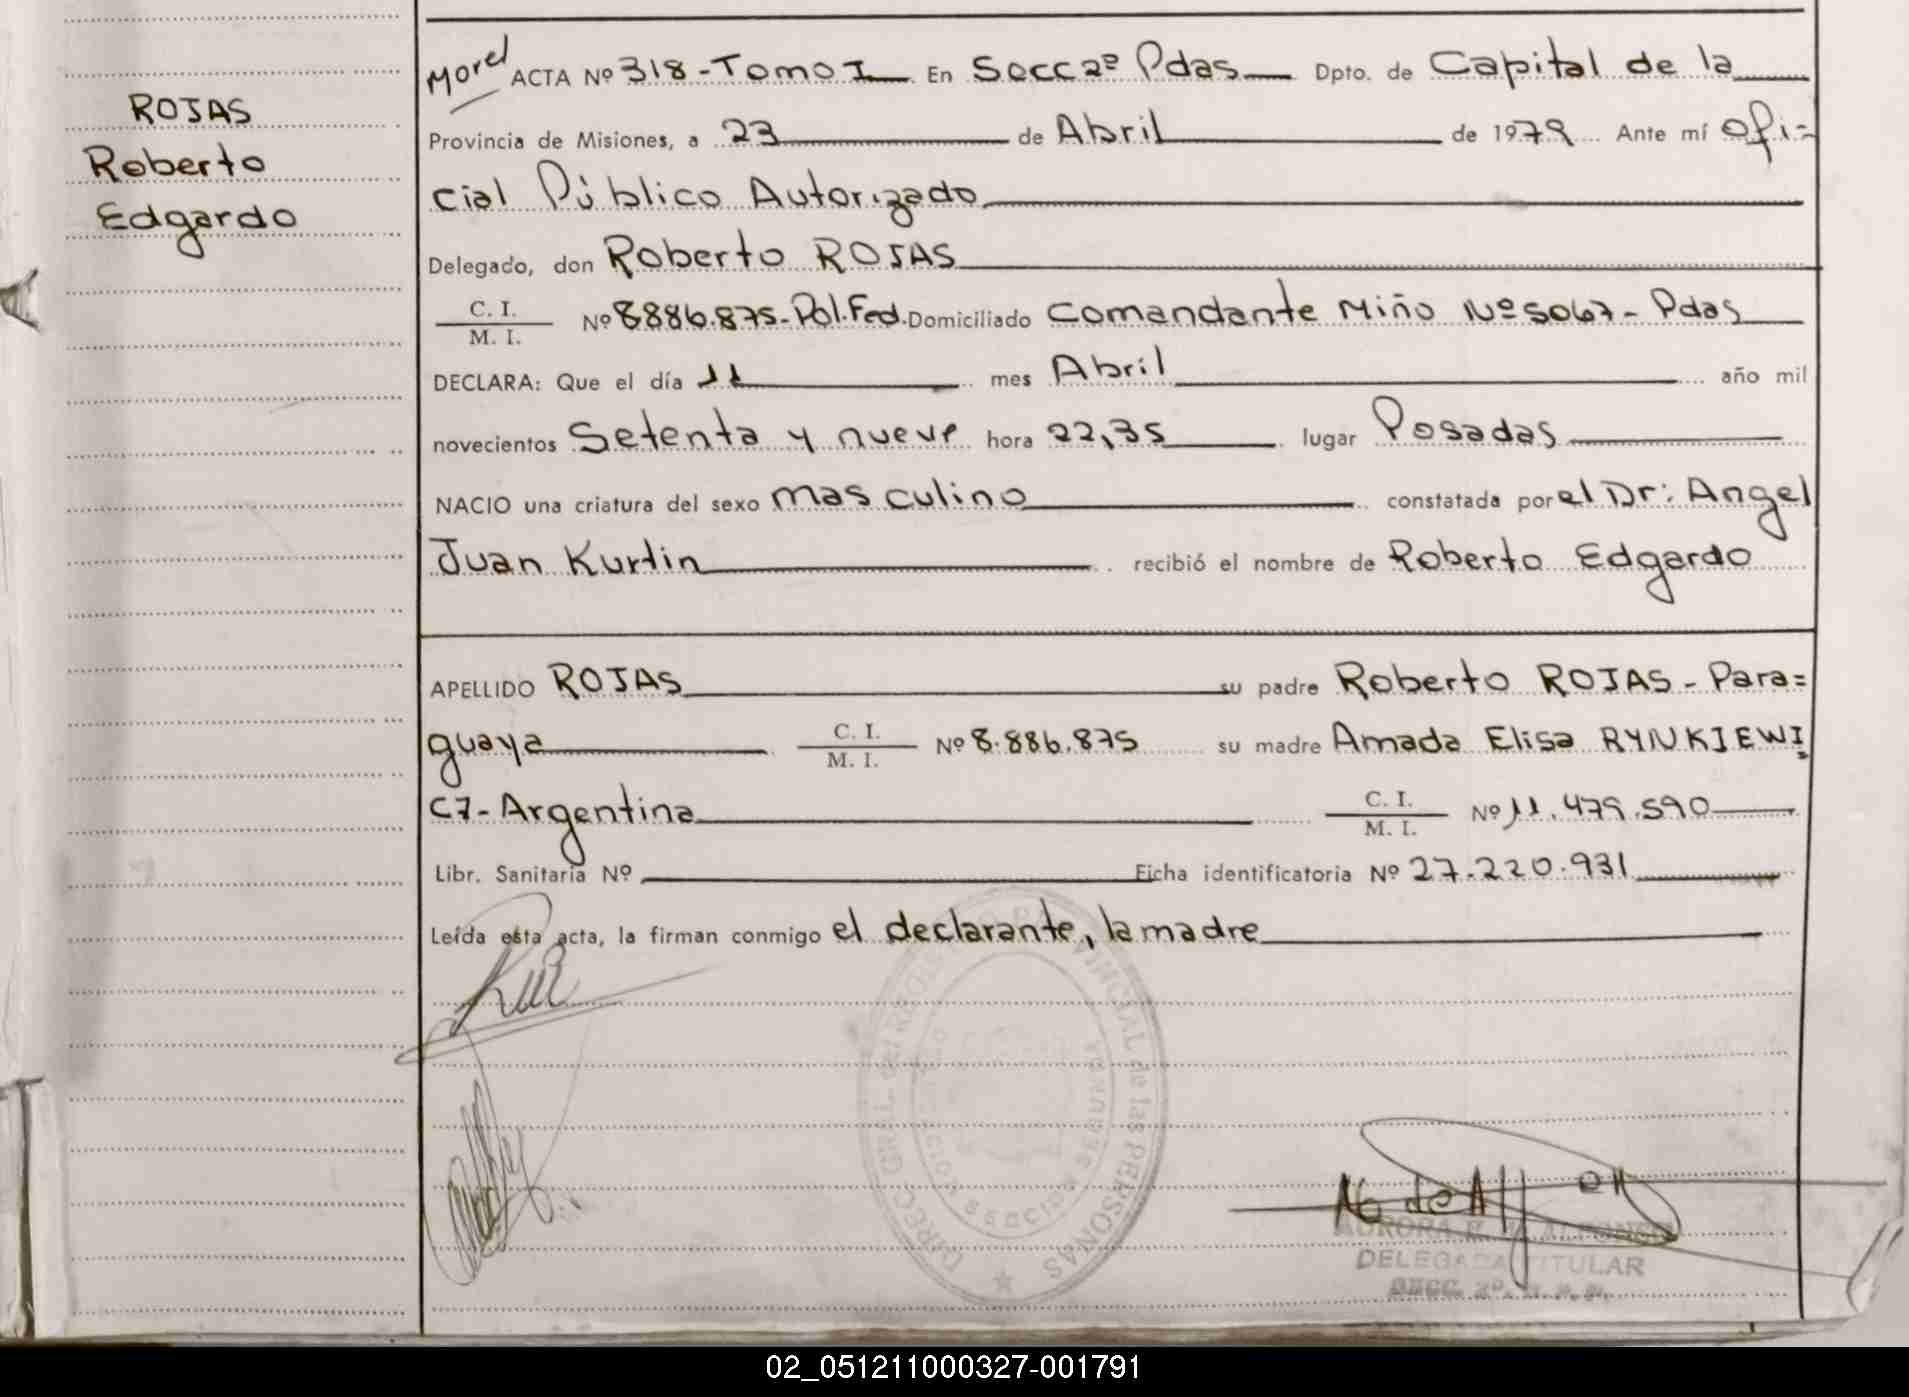 ROJAS
Roberto
Edgardo
Morel ACTA Nº 318-Tomo I En Secc 2º Pdas Dpto. de Capital de la
Provincia de Misiones, a 23 de Abril de 1979 Ante mí Ofi=
cial Público Autorizado
Delegado, don Roberto ROJAS
C. I.
M. I.
Nº 8886.875-Pol.Fed. Domiciliado Comandante Miño Nº 5067- Pdas
DECLARA: Que el día 11 mes Abril año mil
novecientos Setenta y nueve hora 22,35 lugar Posadas
NACIO una criatura del sexo masculino constatada por el Dr: Angel
Juan Kurtin recibió el nombre de Roberto Edgardo
APELLIDO ROJAS su padre Roberto ROJAS - Para=
guaya C. I. Nº 8.886.875 su madre Amada Elisa RYNKIEWI
M. I.
CZ-Argentina C. I. Nº 11.479.590
M. I.
Libr. Sanitaria Nº Ficha identificatoria Nº 27.220.931
Leída esta acta, la firman conmigo el declarante, la madre
PROVINCIAL de las PERSONAS
DELEGADA TITULAR
02_051211000327-001791